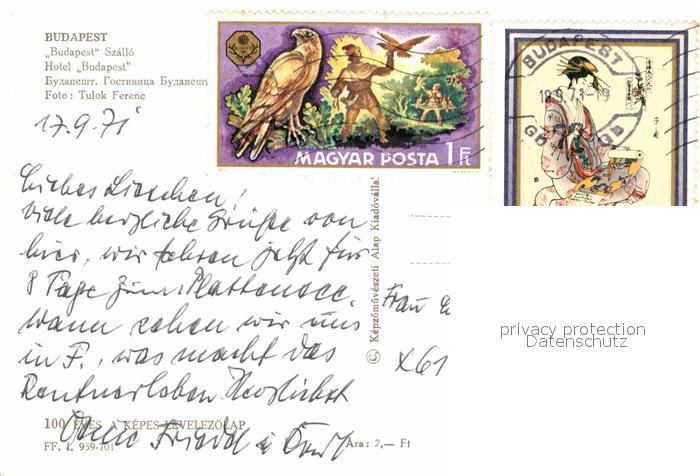 BUDAPEST
„Budapest" Szálló
Hotel „Budapest"
Будапешт. Гостиница Будапешт
Foto: Tulok Ferenc
17.9.71
MAGYAR POSTA 1 Ft
BUDAPEST
Liebes Lieschen!
Viele herzliche Grüße von
hier, wir fahren jetzt für
8 Tage zum Plattensee.
Wann sehen wir uns
in F., was macht das
Rentnerleben Herzlichst
100 ÉVES A KÉPES LEVELEZŐLAP
FF. I. 959-701
Ára: 2,— Ft
© Képzőművészeti Alap Kiadóvállal
Frau
X61
privacy protection
Datenschutz